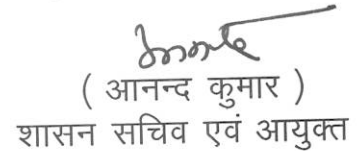 ( आनन्द कुमार )
शासन सचिव एवं आयुक्त